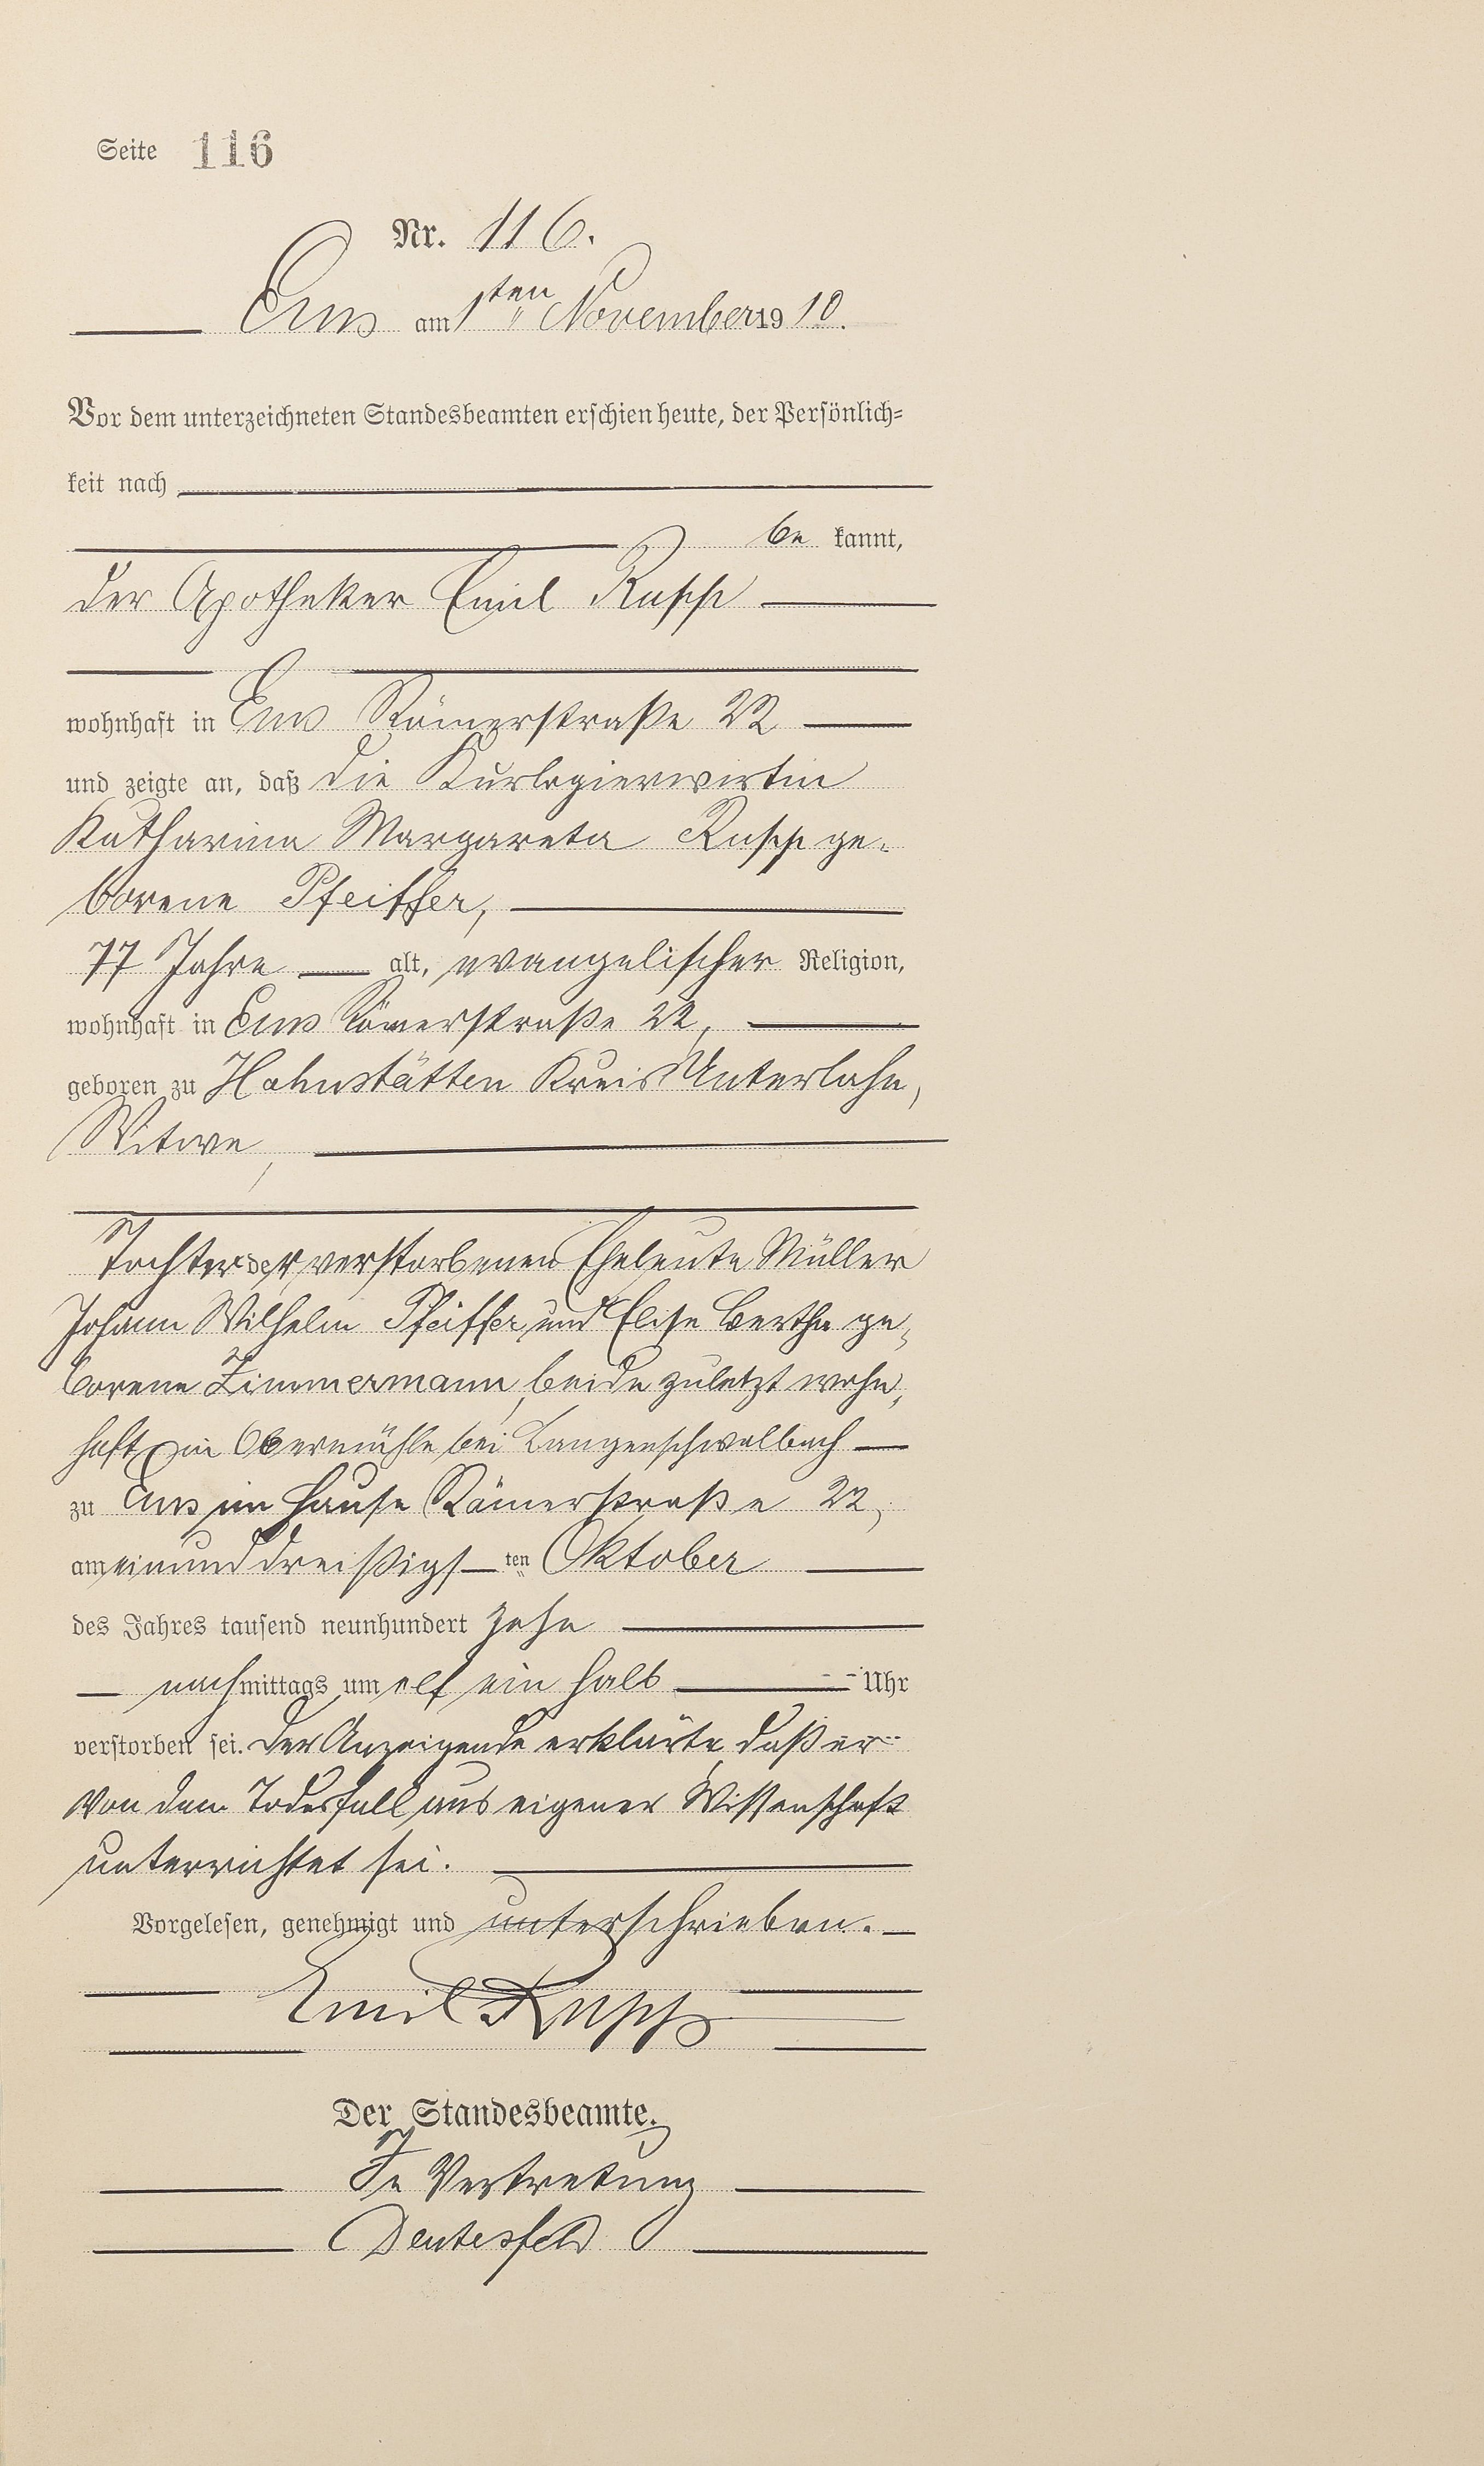 Seite 116
Nr. 116.
Ems am 1sten November 1910.
Vor dem unterzeichneten Standesbeamten erschien heute, der Persönlich-
keit nach
be kannt,
der Apotheker Emil Rupp
wohnhaft in Ems Römerstraße 22
und zeigte an, daß die Kurlogierwirtin
Katharina Margareta Rupp ge-
borene Pfeiffer,
77 Jahre alt, evangelischer Religion,
wohnhaft in Ems Römerstraße 22,
geboren zu Hahnstätten Kreis Unterlahn,
Witwe,
Tochter der verstorbenen Eheleute Müller
Johann Wilhelm Pfeiffer und Elise Bertha ge-
borene Zimmermann, beide zuletzt wohn-
haft in Obermühle bei Langenschwalbach
zu Ems im Hause Römerstraße 22,
am einunddreißigs ten Oktober
des Jahres tausend neunhundert zehn
nachmittags um elf ein halb Uhr
verstorben sei. Der Anzeigende erklärte, daß er
von dem Todesfall aus eigener Wissenschaft
unterrichtet sei.
Vorgelesen, genehmigt und unterschrieben.
Emil Rupp
Der Standesbeamte.
In Vertretung